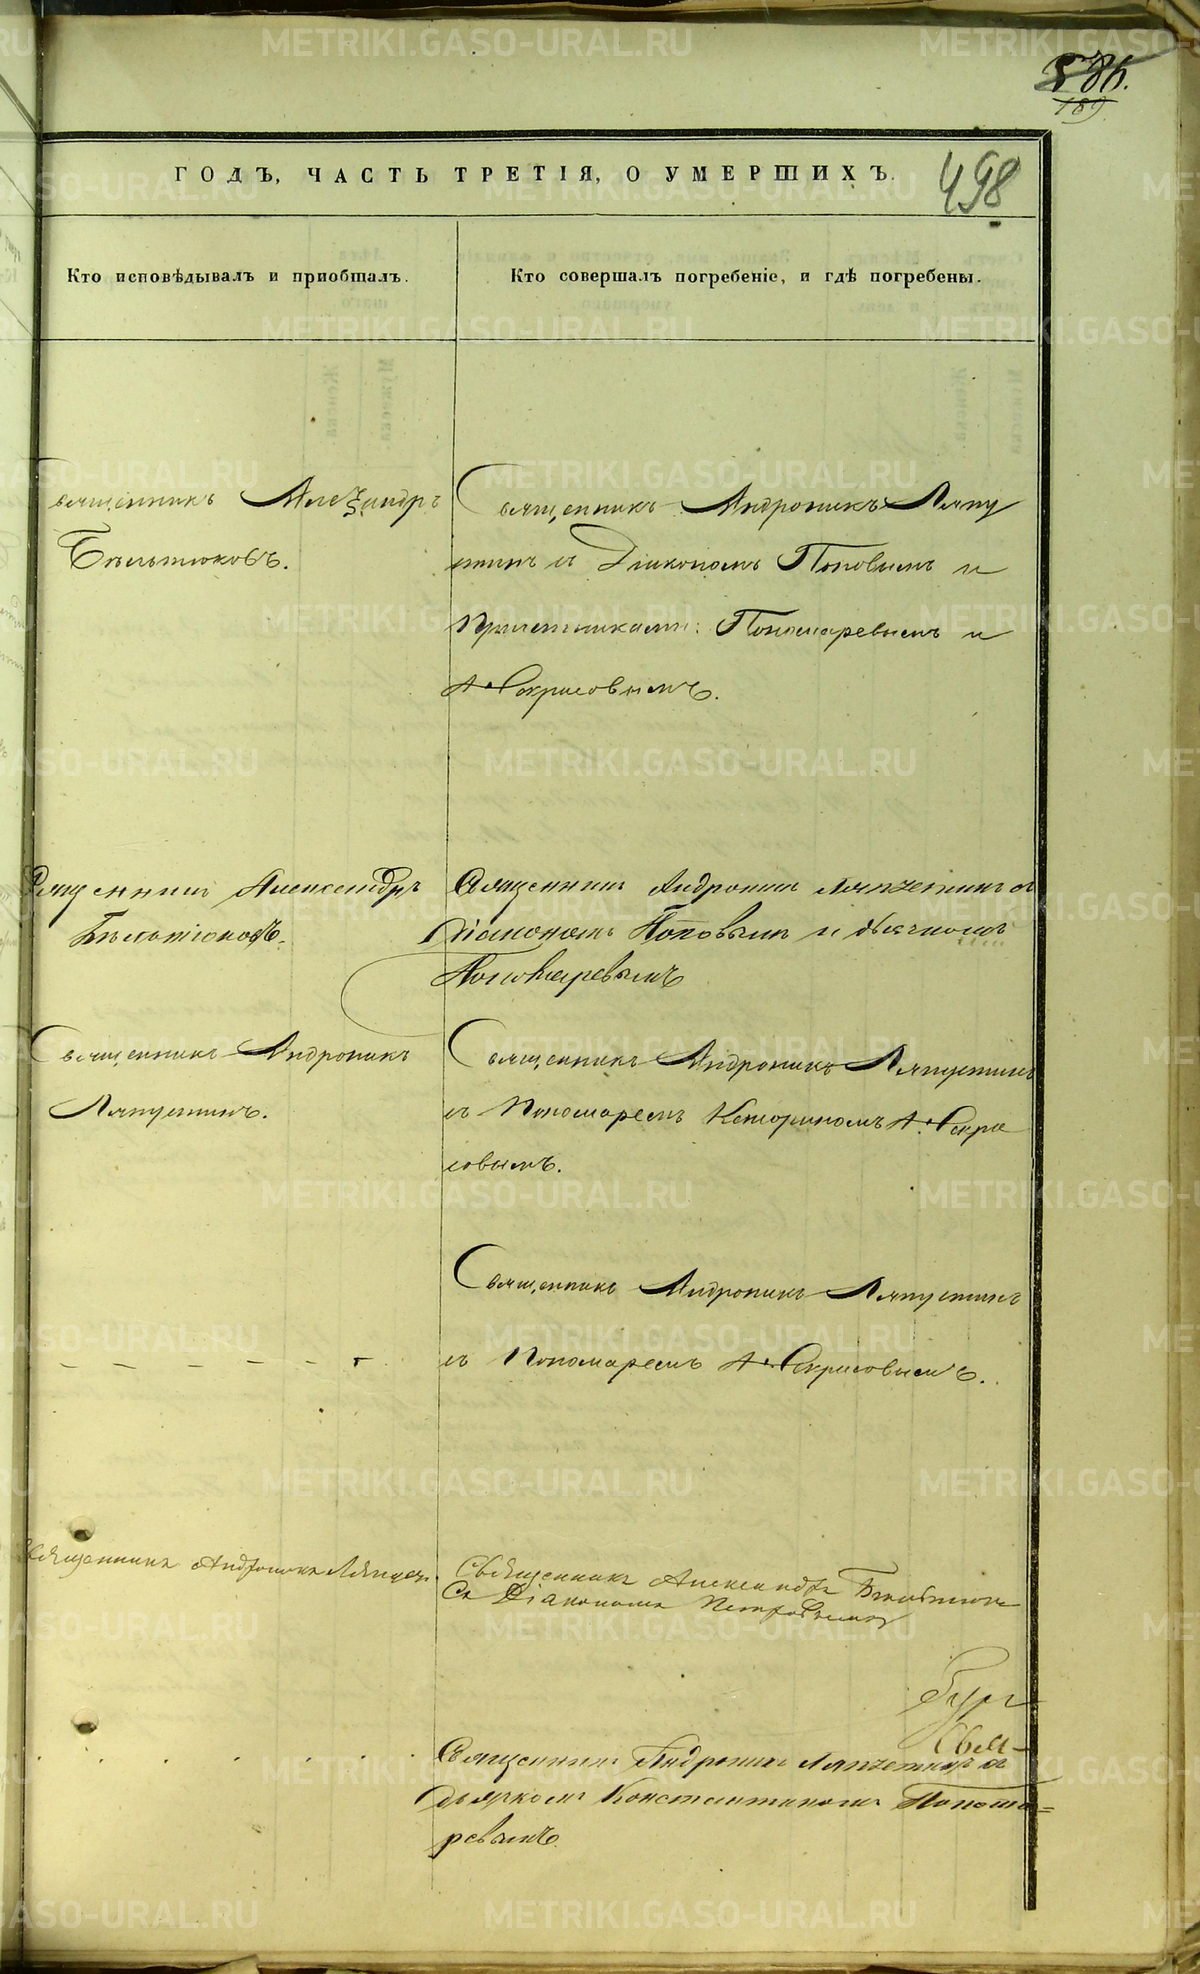 586.
189
ГОДЪ, ЧАСТЬ ТРЕТІЯ, О УМЕРШИХЪ.
498
Кто исповѣдывалъ и пріобщалъ.
Кто совершалъ погребеніе, и гдѣ погребены.
Священникъ Алеѯандръ
Бѣльтюковъ.
Священникъ Андроникъ Ляпу
стинъ съ Діакономъ Поповымъ и
Причетниками: Пономаревымъ и
Некрасовымъ.
Священник Александръ
Бѣльтюковъ.
Священник Андроник Ляпустинъ съ
Діакономъ Поповымъ и дьячкомъ
Пономаревымъ
Священникъ Андроникъ
Ляпустинъ.
Священникъ Андроникъ Ляпустинъ
съ Пономаремъ Некра
совымъ.
Священникъ Андроникъ Ляпустинъ
съ Пономаремъ Некрасовымъ.
Священникъ Андроникъ Ляпуст.
Священникъ Александръ Бѣльтюк
Съ Діакономъ Петровымъ
Священник Андроник Ляпустинъ съ
дьячкомъ Константиномъ Понома=
ревымъ
METRIKI.GASO-URAL.RU